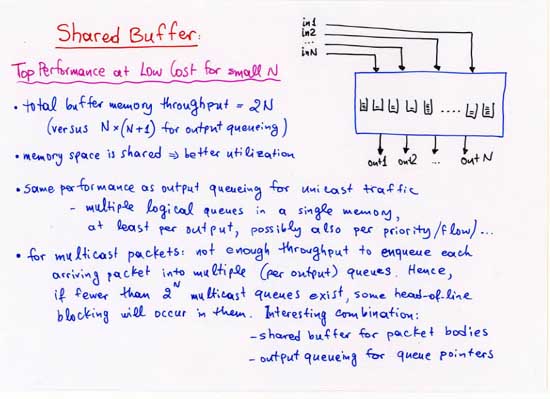 Shared Buffer:
Top Performance at Low Cost for small N
• total buffer memory throughput = 2N
(versus N×(N+1) for output queueing)
• memory space is shared ⇒ better utilization
in1
in2
...
inN
....
out1 out2 ... outN
• same performance as output queueing for unicast traffic
- multiple logical queues in a single memory,
at least per output, possibly also per priority/flow)...
• for multicast packets: not enough throughput to enqueue each
arriving packet into multiple (per output) queues. Hence,
if fewer than 2^N multicast queues exist, some head-of-line
blocking will occur in them. Interesting combination:
- shared buffer for packet bodies
- output queueing for queue pointers